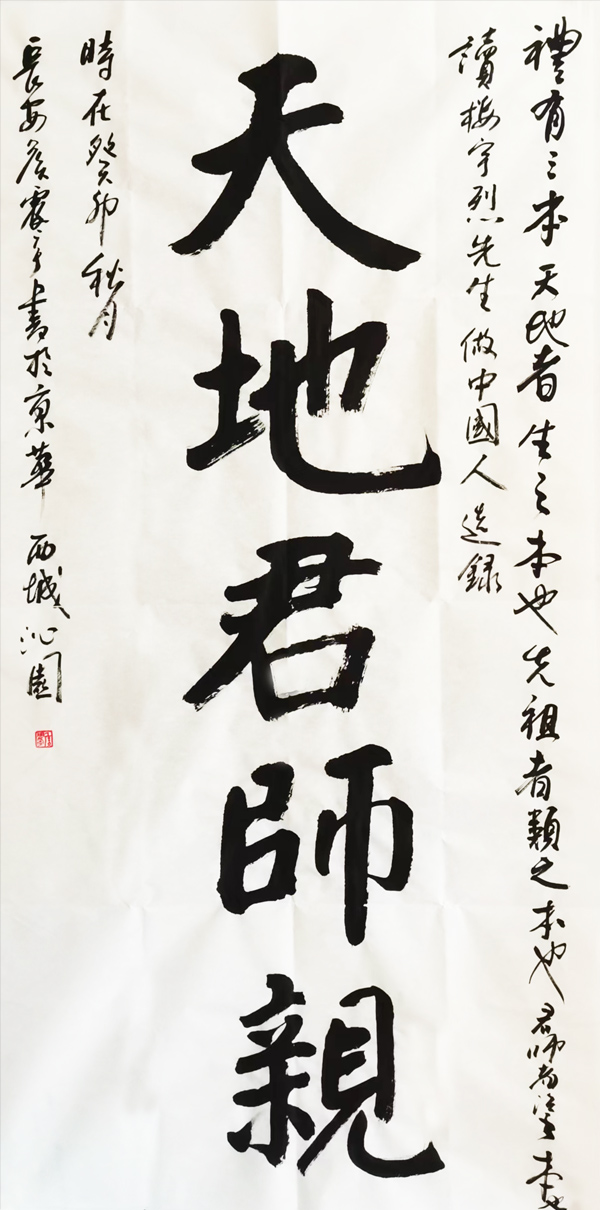 禮有三本天地者生之本也先祖者類之本也君師者治之本也
讀樓宇烈先生做中國人選錄
天地君師親
時在癸卯秋月
長安詹震宇書於京華西城沁園